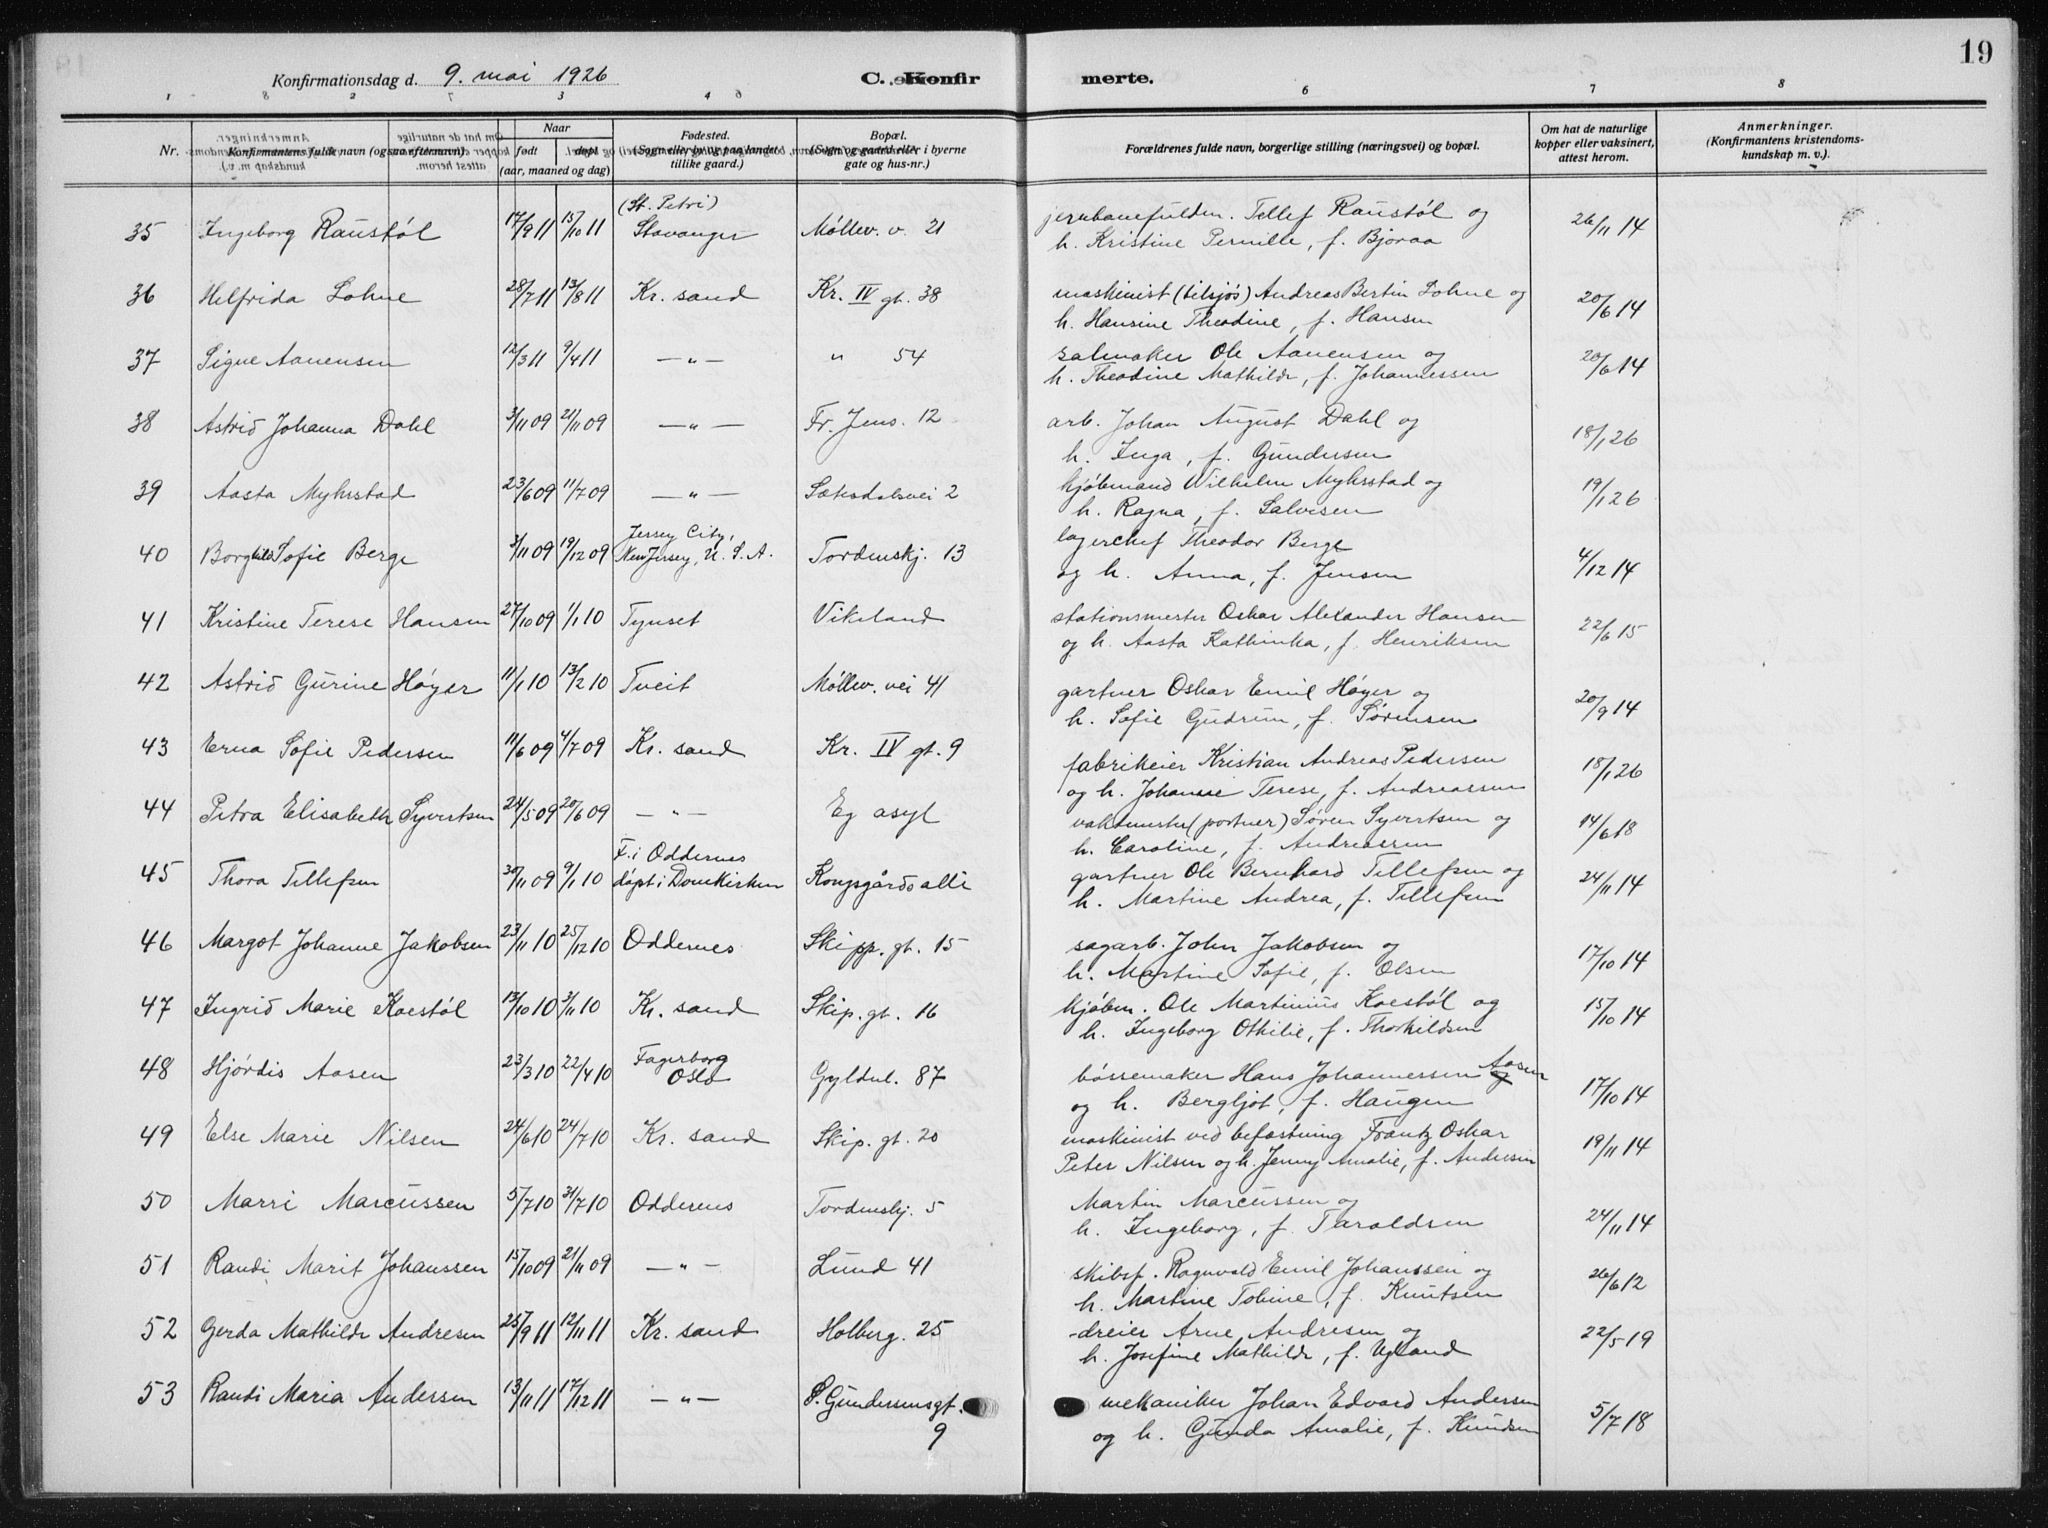 19
Konfirmationsdag d. 9. mai 1926
C. Konfirmerte.
1 2 3 4 6 7 8
Nr.
Konfirmantens fulde navn (ogsaa efternavn)
Naar
født døpt
(aar, maaned og dag)
Fødested.
(Sogn eller by og paa landet tillike gaard.)
Bopæl.
(Sogn og gaard eller i byerne gate og hus-nr.)
Forældrenes fulde navn, borgerlige stilling (næringsvei) og bopæl.
Om hat de naturlige kopper eller vaksinert, attest herom.
Anmerkninger.
(Konfirmantens kristendoms-kundskap m. v.).
35 Ingeborg Raustøl 17/9 11 15/10 11 (St. Petri) Stavanger Møllev. v. 21 jernbanefuldm. Tellef Raustøl og 26/11 14
h. Kristine Pernille, f. Bjoraa
36 Helfrida Lohne 28/7 11 13/8 11 Kr. sand Kr. IV gt. 38 maskinist (tilsjøs) Andreas Bertin Lohne og 20/6 14
h. Hansine Theodine, f. Hansen
37 Signe Aanensen 12/3 11 9/4 11 — " — " 54 salmaker Ole Aanensen og 20/6 14
h. Theodine Mathilde, f. Johannessen
38 Astrid Johanna Dahl 3/11 09 21/11 09 — " — Fr. Jens. 12 arb. Johan August Dahl og 18/1 26
h. Inga, f. Gundersen
39 Aasta Myhrstad 23/6 09 11/7 09 — " — Sætesdalsvei 2 kjøbmand Wilhelm Myhrstad og 19/1 26
h. Ragna, f. Salvesen
40 Borghild Sofie Berge 3/11 09 19/12 09 Jersey City, New Jersey, U. S. A. Tordenskj. 13 lagerchef Theodor Berge 4/12 14
og h. Anna, f. Jensen
41 Kristine Terese Hansen 27/10 09 1/1 10 Tynset Vikeland stationsmester Oskar Alexander Hansen 22/6 15
og h. Aasta Kathinka, f. Henriksen
42 Astrid Gurine Høyer 11/1 10 13/2 10 Tveit Møllev. vei 41 gartner Oskar Emil Høyer og 20/9 14
h. Sofie Gudrun, f. Sørensen
43 Erna Sofie Pedersen 11/6 09 4/7 09 Kr. sand Kr. IV gt. 9 fabrikeier Kristian Andreas Pedersen 18/1 26
og h. Johanne Terese, f. Andreassen
44 Petra Elisabeth Syvertsen 24/5 09 20/6 09 — " — Eg asyl vaktmester (portner) Søren Syvertsen og 14/6 18
h. Caroline, f. Andreassen
45 Thora Tellefsen 30/11 09 9/1 10 F. i Oddernes døpt i Domkirken Kongsgårds alle gartner Ole Bernhard Tellefsen og 24/11 14
h. Martine Andrea, f. Tellefsen
46 Margot Johanne Jakobsen 23/11 10 25/12 10 Oddernes Skipp. gt. 15 sagarb. John Jakobsen og 17/10 14
h. Martine Sofie, f. Olsen
47 Ingrid Marie Koestøl 13/10 10 3/11 10 Kr. sand Skip. gt. 16 kjøbm. Ole Martinius Koestøl og 15/10 14
h. Ingeborg Othilie, f. Thorkildsen
48 Hjørdis Aasen 23/3 10 22/4 10 Fagerborg Oslo Gyldnl. 87 børsemaker Hans Johannessen Aasen 17/10 14
og h. Bergljot, f. Haugen
49 Else Marie Nilsen 24/6 10 24/7 10 Kr. sand Skip. gt. 20 maskinist ved befæstning Frantz Oskar 19/11 14
Peter Nilsen og h. Jenny Amalie, f. Andersen
50 Marri Marcussen 5/7 10 31/7 10 Oddernes Tordenskj. 5 Martin Marcussen og 24/11 14
h. Ingeborg, f. Taraldsen
51 Randi Marit Johanssen 15/10 09 21/11 09 — " — Lund 41 skibsf. Ragnvald Emil Johanssen og 26/6 12
h. Martine Tobine, f. Knutsen
52 Gerda Mathilde Andresen 25/9 11 12/11 11 Kr. sand Holberg. 25 dreier Arne Andresen og 22/5 19
h. Josefine Mathilde, f. Ugland
53 Randi Maria Andersen 13/11 11 17/12 11 — " — P. Gundersensgt. 9 mekaniker Johan Edvard Andersen 5/7 18
og h. Gunda Amalie, f. Knudsen